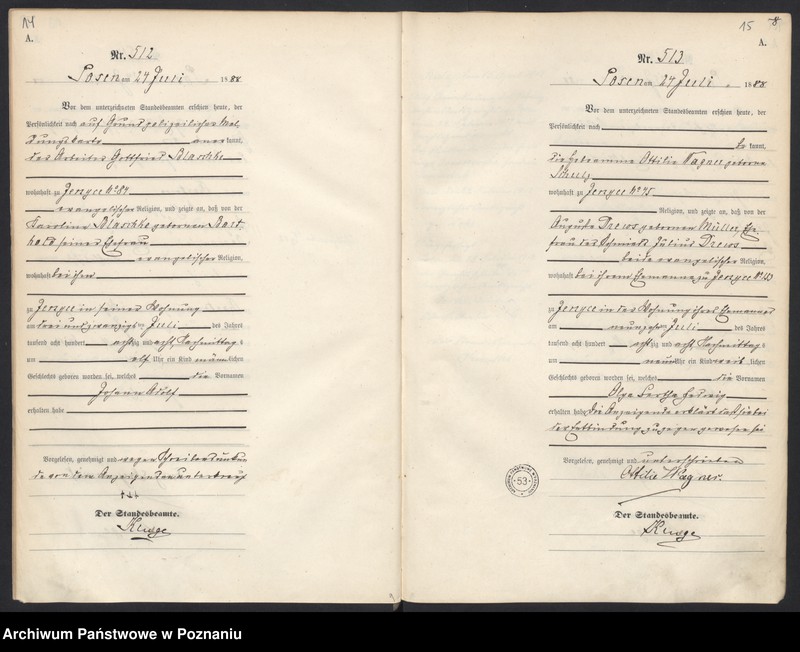 14
A.
Nr. 512
Posen am 24 Juli 1888
Vor dem unterzeichneten Standesbeamten erschien heute, der
Persönlichkeit nach auf Grund polizeilicher Mel
dungskarte anerkannt,
der Arbeiter Gottfried Blaschke
wohnhaft zu Jerzyce No 84
evangelischer Religion, und zeigte an, daß von der
Karoline Blaschke geborenen
seiner Ehefrau
evangelischer Religion,
wohnhaft bei ihm
zu Jerzyce in seiner Wohnung
am drei und zwanzigsten Juli des Jahres
tausend acht hundert achtzig und acht Nachmittags
um elf Uhr ein Kind männlichen
Geschlechts geboren worden sei, welches die Vornamen
Johann Adolf
erhalten habe
Vorgelesen, genehmigt und wegen Schreibensunkun
de von dem Anzeigenden unterkreuzt
†††
Der Standesbeamte.
Kruge
15
8
A.
Nr. 513
Posen am 24 Juli 1888
Vor dem unterzeichneten Standesbeamten erschien heute, der
Persönlichkeit nach
bekannt,
die Hebeamme Ottilie Wagner geborene
Schulz
wohnhaft zu Jerzyce No 75
Religion, und zeigte an, daß von der
Auguste Drews geborenen Müller, Ehe
frau des Schmieds Julius Drews
beide evangelischer Religion,
wohnhaft bei ihrem Ehemanne zu Jerzyce No
zu Jerzyce in der Wohnung ihres Ehemannes
am neunzehn Juli des Jahres
tausend acht hundert achtzig und acht Nachmittags
um neun Uhr ein Kind weiblichen
Geschlechts geboren worden sei, welches die Vornamen
Olga Bertha Hedwig
erhalten habe. Die Anzeigende erklärt daß sie bei
der Entbindung zugegen gewesen sei
Vorgelesen, genehmigt und unterschrieben
Ottilie Wagner.
53
Der Standesbeamte.
Kruge
Archiwum Państwowe w Poznaniu